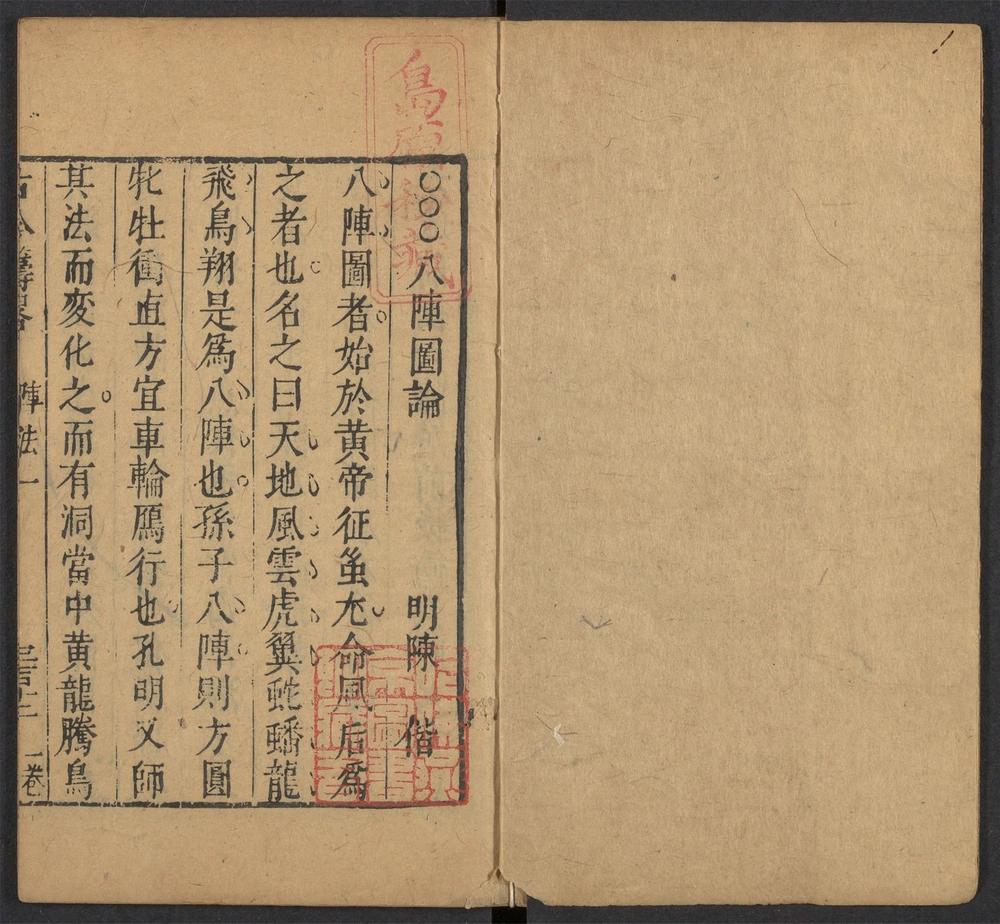 〇〇〇八陣圖論　明陳　偕
八陣圖者始於黄帝征蚩尤命風后爲
之者也名之曰天地風雲虎翼蛇蟠龍
飛鳥翔是爲八陣也孫子八陣則方圓
牝牡衝直方宜車輪鴈行也孔明又師
其法而変化之而有洞當中黄龍騰鳥
陣法一
一卷